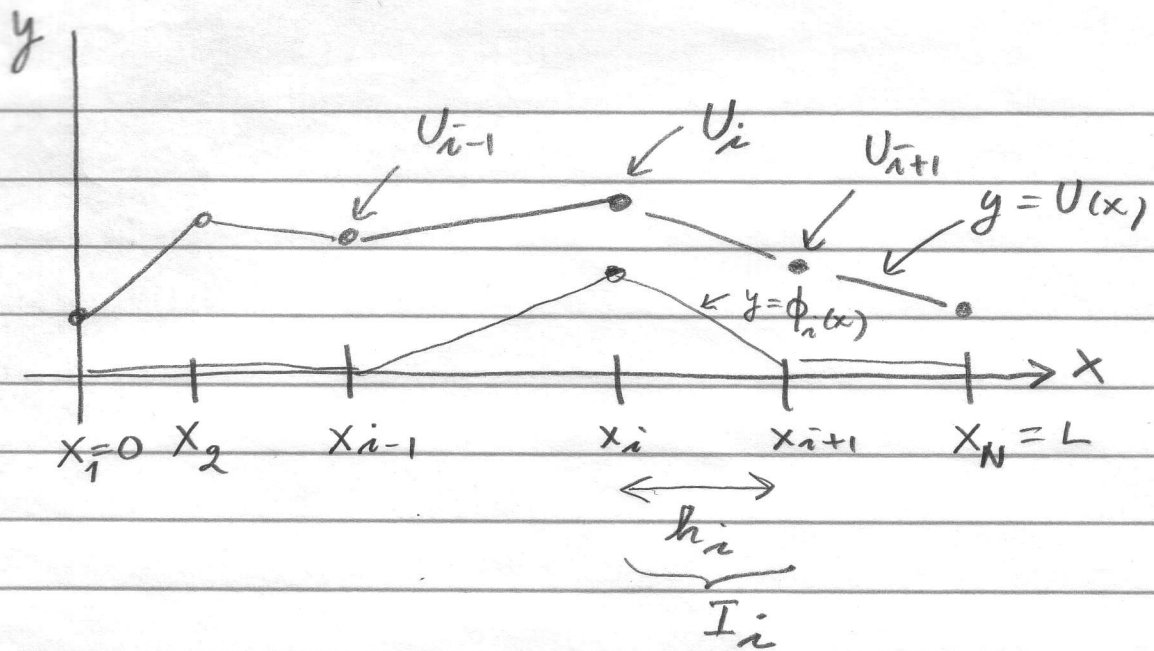 y
U_{i-1}
U_i
U_{i+1}
y = U(x)
y = ϕ_i(x)
x
x_1=0 x_2 x_{i-1} x_i x_{i+1} x_N = L
h_i
I_i